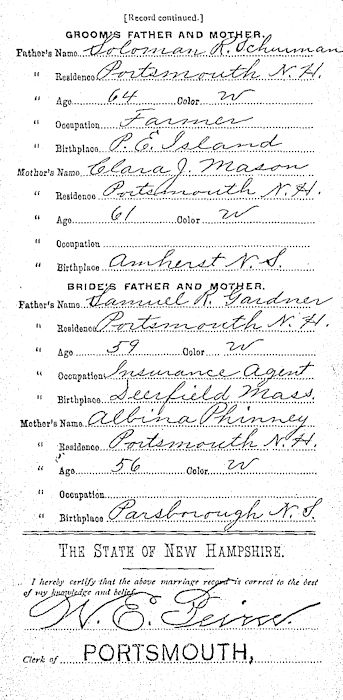 [Record continued.]
GROOM'S FATHER AND MOTHER.
Father's Name Soloman R. Schurman
" Residence Portsmouth N. H.
" Age 64 Color W
" Occupation Farmer
" Birthplace P. E. Island
Mother's Name Clara J. Mason
" Residence Portsmouth N. H.
" Age 61 Color W
" Occupation
" Birthplace Amherst N. S.
BRIDE'S FATHER AND MOTHER.
Father's Name Samuel R. Gardner
" Residence Portsmouth N. H.
" Age 59 Color W
" Occupation Insurance Agent
" Birthplace Deerfield Mass.
Mother's Name Albina Phinney
" Residence Portsmouth N. H.
" Age 56 Color W
" Occupation
" Birthplace Parsborough N. S.
THE STATE OF NEW HAMPSHIRE.
I hereby certify that the above marriage record is correct to the best
of my knowledge and belief.
W. E.
Clerk of PORTSMOUTH,